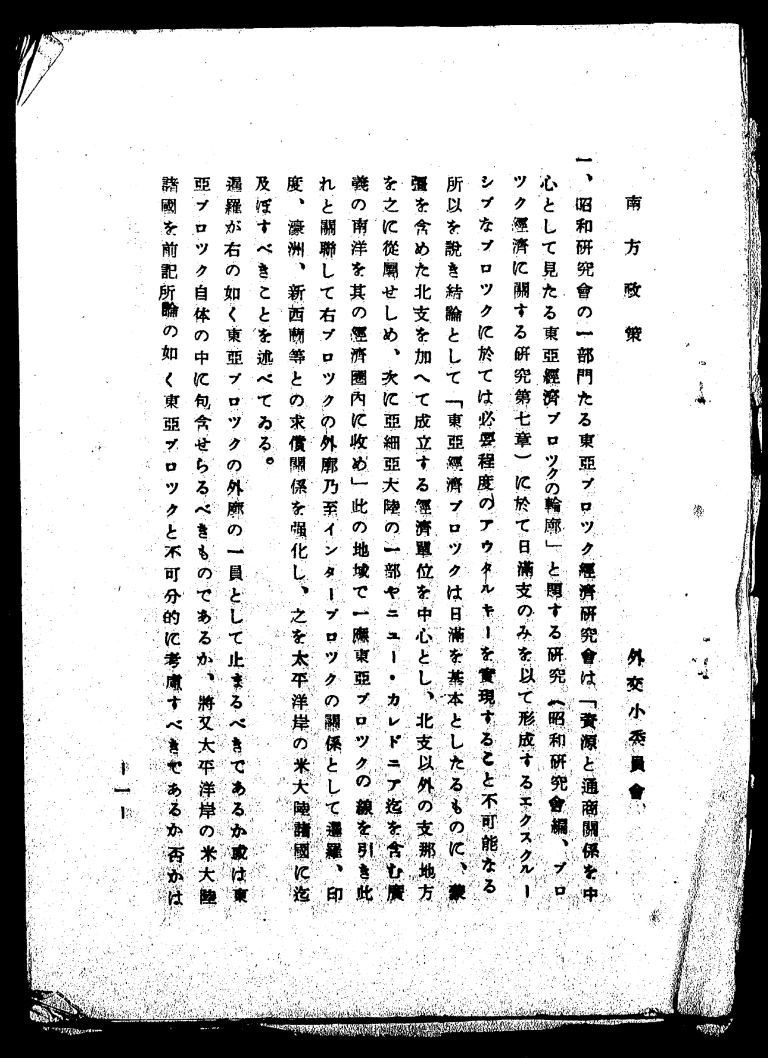 南方政策
外交小委員會
一、昭和研究會の一部門たる東亞ブロック經濟研究會は「資源と通商關係を中
心として見たる東亞經濟ブロックの輪廓」と題する研究(昭和研究會編、ブロ
ック經濟に關する研究第七章)に於て日滿支のみを以て形成するエクスクルー
シブなブロックに於ては必要程度のアウタルキーを實現すること不可能なる
所以を説き結論として「東亞經濟ブロックは日滿を基本としたるものに、蒙
疆を含めた北支を加へて成立する經濟單位を中心とし、北支以外の支那地方
を之に從屬せしめ、次に亞細亞大陸の一部やニュー・カレドニア迄を含む廣
義の南洋を其の經濟圏内に收め」此の地域で一應東亞ブロックの線を引き此
れと關聯して右ブロックの外廓乃至インターブロックの關係として暹羅、印
度、濠洲、新西蘭等との求償關係を强化し、之を太平洋岸の米大陸諸國に迄
及ぼすべきことを述べてゐる。
暹羅が右の如く東亞ブロックの外廓の一員として止まるべきであるか或は東
亞ブロック自体の中に包含せらるべきものであるか、將又太平洋岸の米大陸
諸國を前記所論の如く東亞ブロックと不可分的に考慮すべきであるか否かは
—一—